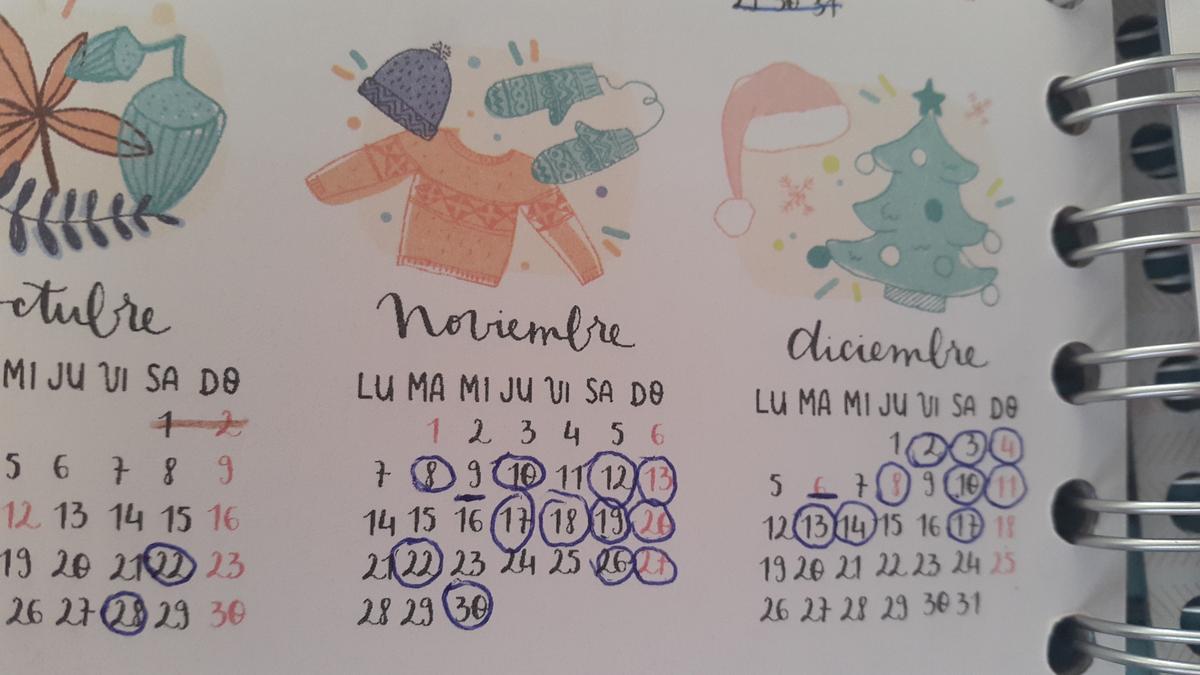 30 31
ctubre
MI JU VI SA DO
1 2
5 6 7 8 9
12 13 14 15 16
19 20 21 22 23
26 27 28 29 30
Noviembre
LU MA MI JU VI SA DO
1 2 3 4 5 6
7 8 9 10 11 12 13
14 15 16 17 18 19 20
21 22 23 24 25 26 27
28 29 30
diciembre
LU MA MI JU VI SA DO
1 2 3 4
5 6 7 8 9 10 11
12 13 14 15 16 17 18
19 20 21 22 23 24 25
26 27 28 29 30 31